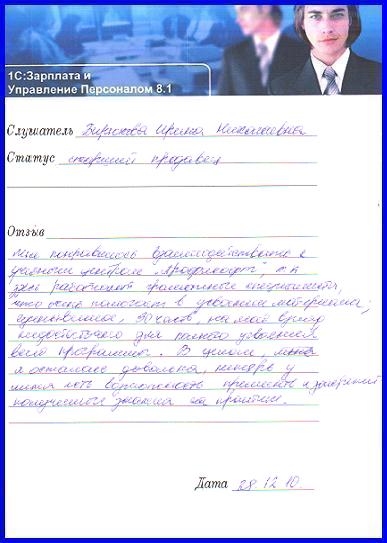 1С:Зарплата и
Управление Персоналом 8.1
Слушатель Ирина Николаевна
Статус старший продавец
Отзыв
Мне понравилось взаимодействие с
учебным центром "Профиклуб", т.к.
здесь работают грамотные специалисты,
что очень помогает в усвоении материала;
единственное, часов, на мой взгляд
недостаточно для полного усвоения
всей программы. В целом,
я осталась довольна, теперь у
меня есть возможность применить и закрепить
полученные знания на практике.
Дата 28.12.10.